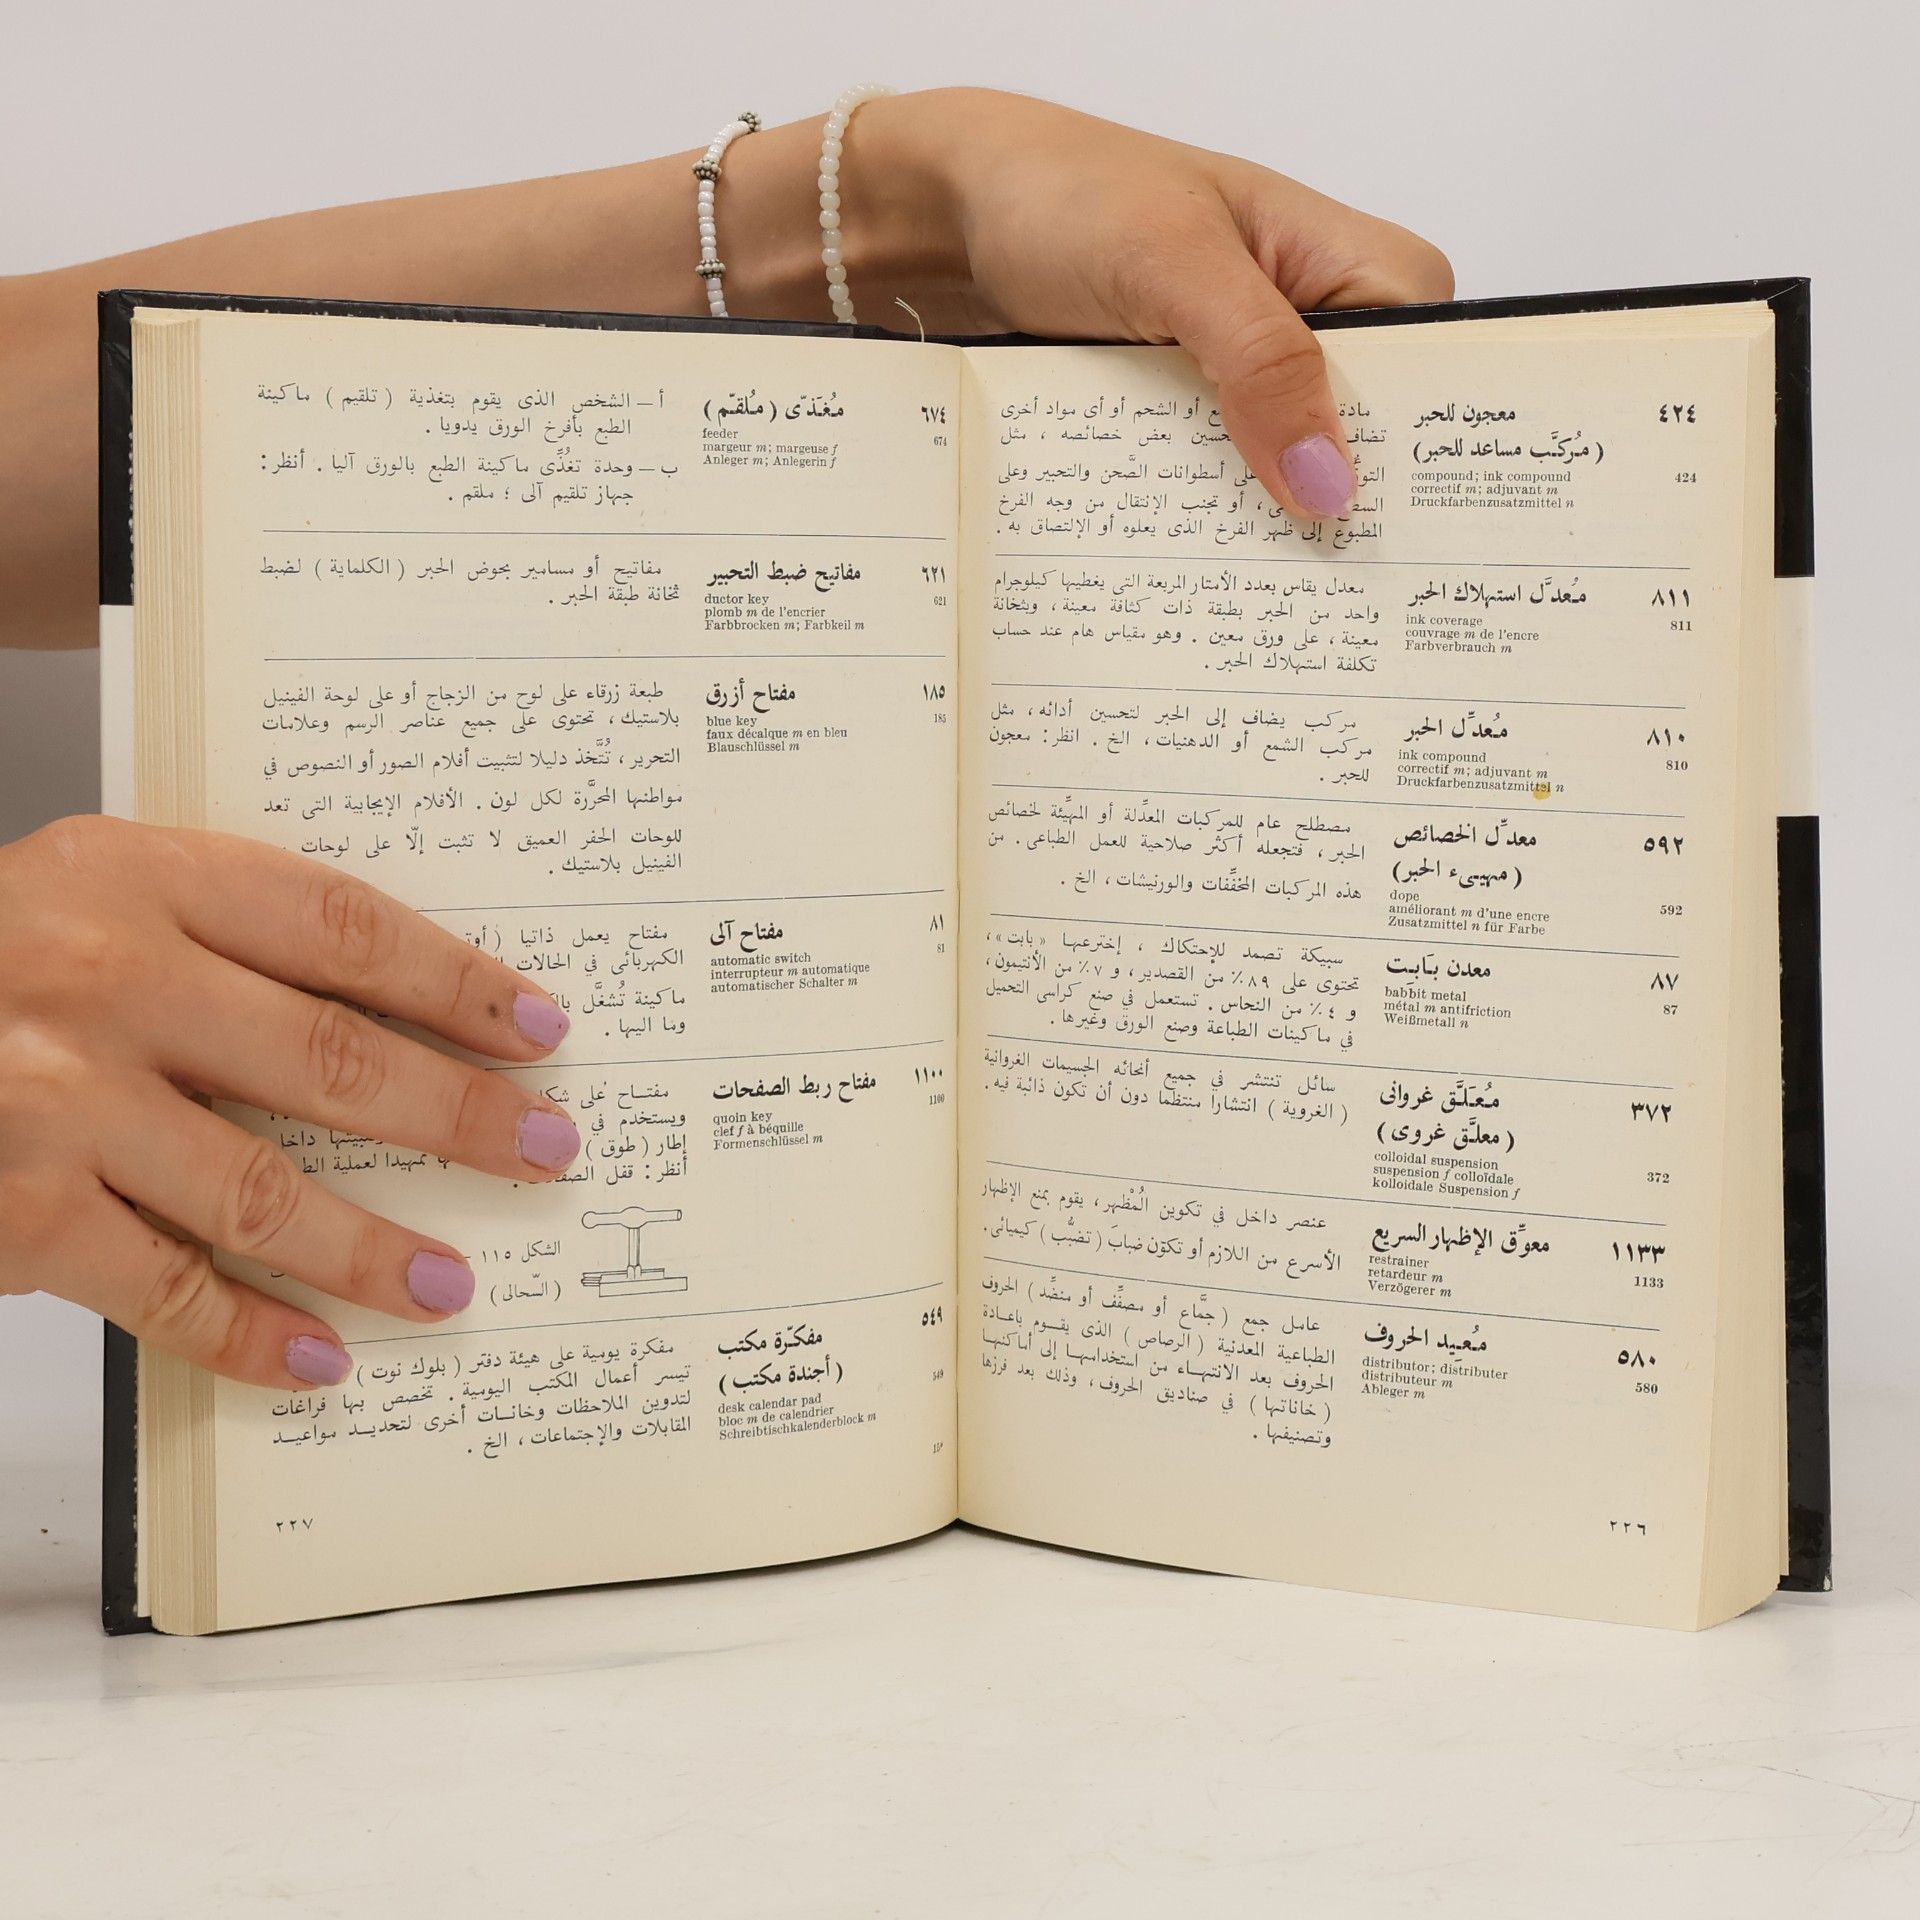 ٤٢٤
معجون للحبر
(مُركَّب مساعد للحبر)
424
compound; ink compound
correctif m; adjuvant m
Druckfarbenzusatzmittel n
مادة أو الشحم أو أى مواد أخرى
تضاف بعض خصائصه ، مثل
على أسطوانات الصَّحن والتحبير وعلى
، أو تجنب الإنتقال من وجه الفرخ
المطبوع إلى ظهر الفرخ الذى يعلوه أو الإلتصاق به .
٨١١
مُعدَّل استهلاك الحبر
811
ink coverage
couvrage m de l'encre
Farbverbrauch m
معدل يقاس بعدد الأمتار المربعة التى يغطيها كيلوجرام
واحد من الحبر بطبقة ذات كثافة معينة ، وبثخانة
معينة ، على ورق معين . وهو مقياس هام عند حساب
تكلفة استهلاك الحبر .
٨١٠
مُعدِّل الحبر
810
ink compound
correctif m; adjuvant m
Druckfarbenzusatzmittel n
مركب يضاف إلى الحبر لتحسين أدائه ، مثل
مركب الشمع أو الدهنيات ، الخ . انظر : معجون
للحبر .
٥٩٢
معدِّل الخصائص
(مهيىء الحبر)
592
dope
améliorant m d'une encre
Zusatzmittel n für Farbe
مصطلح عام للمركبات المعدِّلة أو المهيِّئة لخصائص
الحبر ، فتجعله أكثر صلاحية للعمل الطباعى . من
هذه المركبات المخفِّفات والورنيشات ، الخ .
٨٧
معدن بَابِت
87
babbit metal
métal m antifriction
Weißmetall n
سبيكة تصمد للإحتكاك ، إخترعها «بابت» ،
تحتوى على ٨٩٪ من القصدير ، و ٧٪ من الأنتيمون ،
و ٤٪ من النحاس . تستعمل في صنع كراسى التحميل
في ماكينات الطباعة وصنع الورق وغيرها .
٣٧٢
مُعَلَّق غروانى
(معلَّق غروى)
372
colloidal suspension
suspension f colloïdale
kolloidale Suspension f
سائل تنتشر في جميع أنحائه الجسيمات الغروانية
(الغروية) انتشارا منتظما دون أن تكون ذائبة فيه .
١١٣٣
معوِّق الإظهار السريع
1133
restrainer
retardeur m
Verzögerer m
عنصر داخل في تكوين المُظْهِر ، يقوم بمنع الإظهار
الأسرع من اللازم أو تكوّن ضباب (تضبُّب) كيميائى .
٥٨٠
مُعيد الحروف
580
distributor; distributer
distributeur m
Ableger m
عامل جمع (جمَّاع أو مصفِّف أو منضِّد) الحروف
الطباعية المعدنية (الرصاص) الذى يقوم باعادة
الحروف بعد الانتهاء من استخدامها إلى أماكنها
(خاناتها) في صناديق الحروف ، وذلك بعد فرزها
وتصنيفها .
٢٢٦
٦٧٤
مُغَذّى (مُلقّم)
674
feeder
margeur m; margeuse f
Anleger m; Anlegerin f
أ – الشخص الذى يقوم بتغذية (تلقيم) ماكينة
الطبع بأفرخ الورق يدويا .
ب – وحدة تغذِّى ماكينة الطبع بالورق آليا . أنظر :
جهاز تلقيم آلى ؛ ملقم .
٦٢١
مفاتيح ضبط التحبير
621
ductor key
plomb m de l'encrier
Farbbrocken m; Farbkeil m
مفاتيح أو مسامير بحوض الحبر (الكلماية) لضبط
ثخانة طبقة الحبر .
١٨٥
مفتاح أزرق
185
blue key
faux décalque m en bleu
Blauschlüssel m
طبعة زرقاء على لوح من الزجاج أو على لوحة الفينيل
بلاستيك ، تحتوى على جميع عناصر الرسم وعلامات
التحرير ، تُتَّخذ دليلا لتثبيت أفلام الصور أو النصوص في
مواطنها المحرَّرة لكل لون . الأفلام الإيجابية التى تعد
للوحات الحفر العميق لا تثبت إلّا على لوحات
الفينيل بلاستيك .
٨١
مفتاح آلى
81
automatic switch
interrupteur m automatique
automatischer Schalter m
مفتاح يعمل ذاتيا
الكهربائى في الحالات
ماكينة تُشغَّل
وما اليها .
١١٠٠
مفتاح ربط الصفحات
1100
quoin key
clef f à béquille
Formenschlüssel m
مفتاح على شكل
ويستخدم في
إطار (طوق) داخل
أنظر : قفل تمهيدا لعملية
الشكل ١١٥ –
(السّحالى)
٥٤٩
مفكّرة مكتب
(أجندة مكتب)
549
desk calendar pad
bloc m de calendrier
Schreibtischkalenderblock m
مفكرة يومية على هيئة دفتر (بلوك نوت)
تيسر أعمال المكتب اليومية . تخصص بها فراغات
لتدوين الملاحظات وخانات أخرى لتحديد مواعيد
المقابلات والإجتماعات ، الخ .
15*
٢٢٧